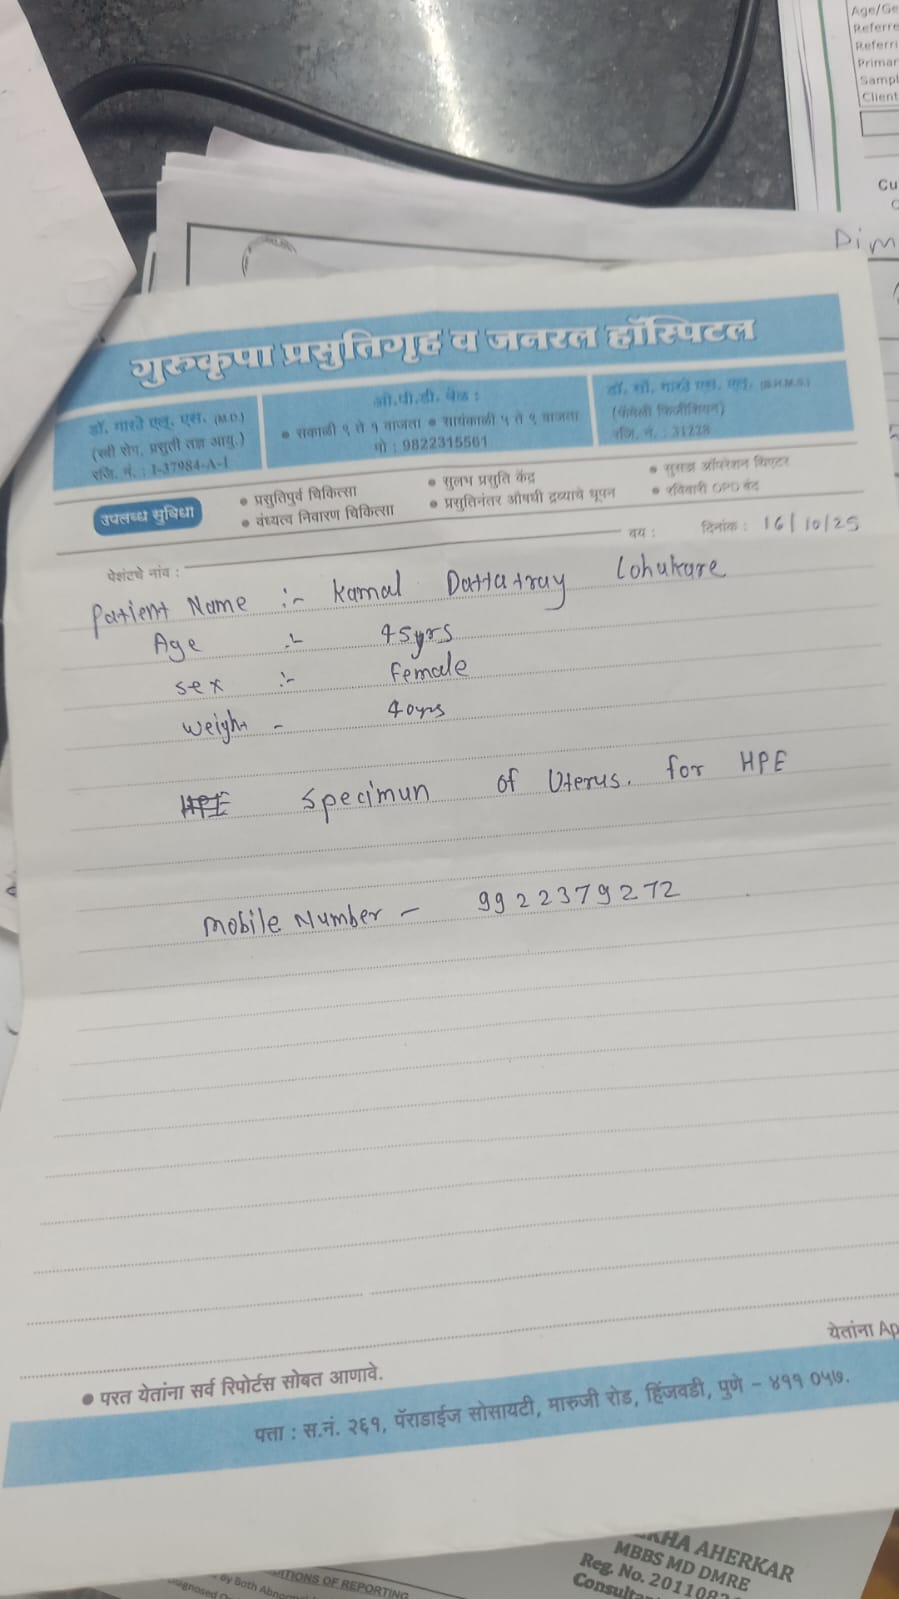 Age/Ge
Referre
Referri
Primar
Sampl
Client
Cu
Dim
गुरुकृपा प्रसुतिगृह व जनरल हॉस्पिटल
डॉ. गारडे एल्. एस. (M.D.)
(स्त्री रोग, प्रसुती तज्ञ आयु.)
रजि. नं. : I-37984-A-1
ओ.पी.डी. वेळ :
• सकाळी ९ ते १ वाजता • सायंकाळी ५ ते ९ वाजता
मो : 9822315561
डॉ. सौ. गारडे एस. एल्. (B.H.M.S.)
(फॅमिली फिजीशियन)
रजि. नं. : 31228
उपलब्ध सुविधा
• प्रसुतिपुर्व चिकित्सा
• वंध्यत्व निवारण चिकित्सा
• सुलभ प्रसुति केंद्र
• प्रसुतिनंतर औषधी द्रव्याचे धूपन
• सुसज्ज ऑपरेशन थिएटर
• रविवारी OPD बंद
पेशंटचे नांव : वय : दिनांक : 16/10/25
Patient Name :- Kamal Dattatray Lohukare
Age :- 45yrs
sex :- Female
weight - 40yrs
HPE specimun of Uterus. for HPE
mobile Number - 9922379272
येतांना Ap
• परत येतांना सर्व रिपोर्टस सोबत आणावे.
पत्ता : स.नं. २६१, पॅराडाईज सोसायटी, मारुजी रोड, हिंजवडी, पुणे - ४११ ०५७.
KHA AHERKAR
MBBS MD DMRE
Reg. No. 2011082
Consulta
ITIONS OF REPORTING
By Both Abnor